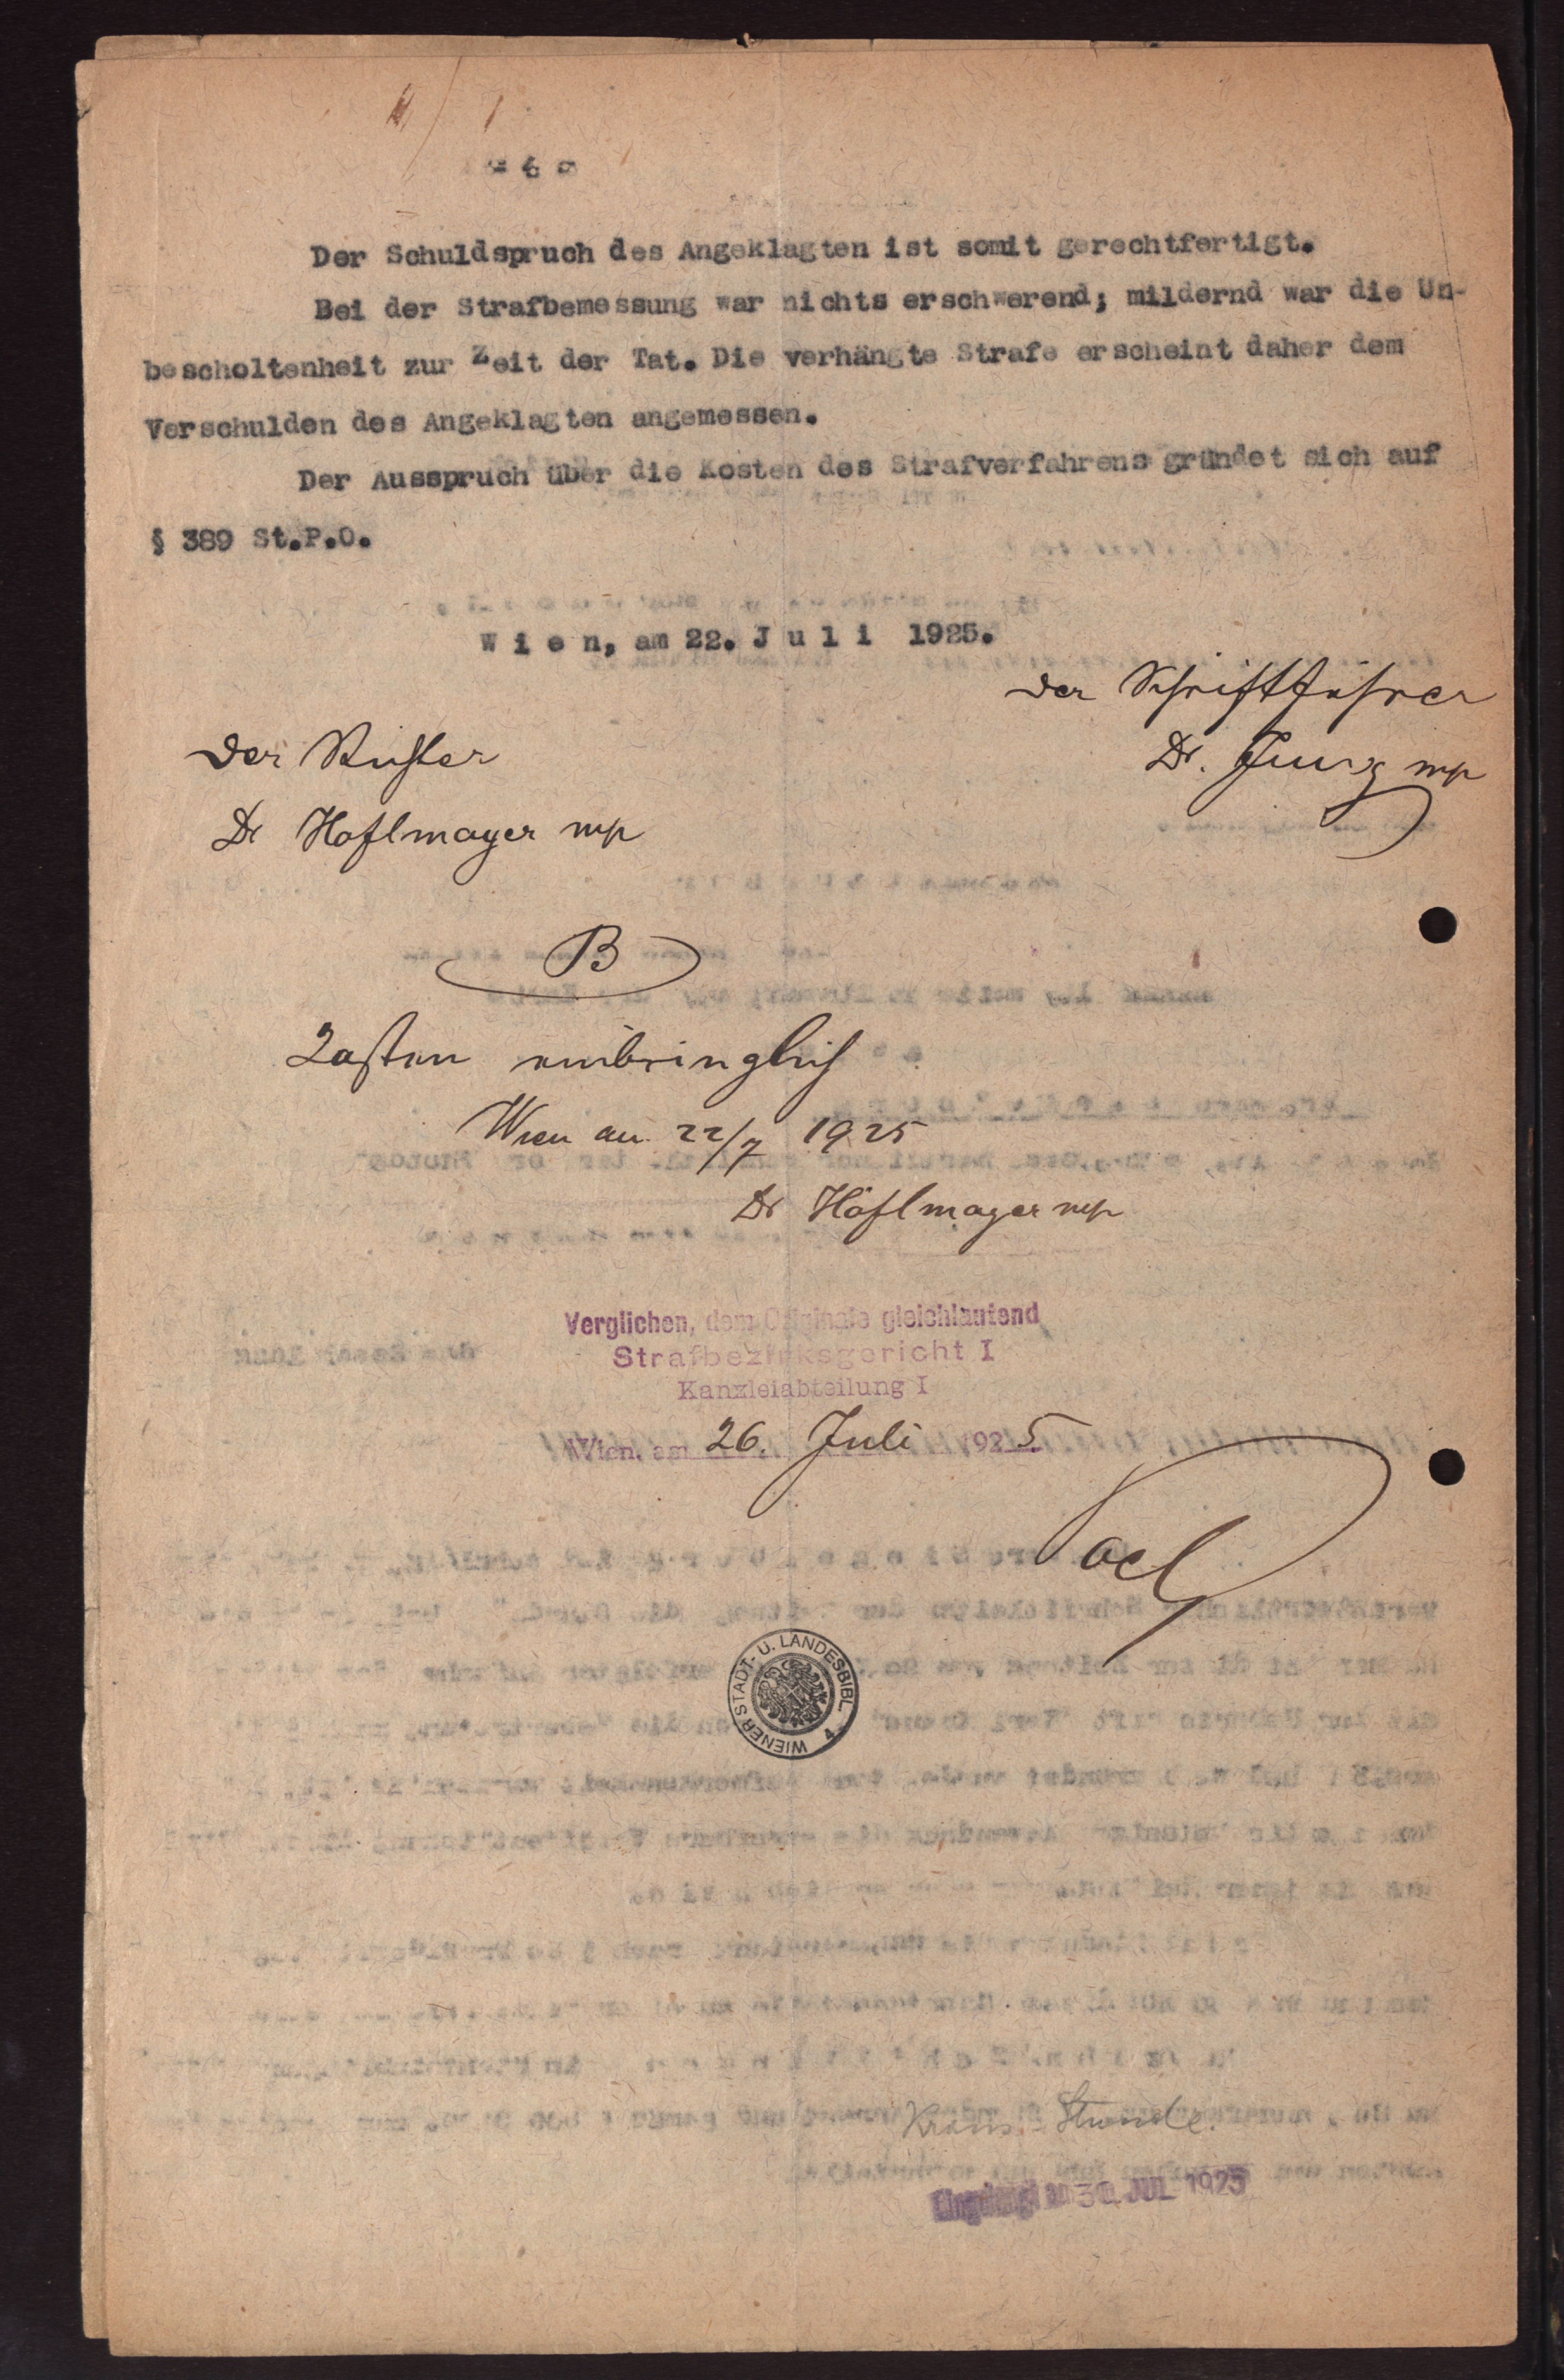 - 6 -
Der Schuldspruch des Angeklagten ist somit gerechtfertigt.
Bei der Strafbemessung war nichts erschwerend; mildernd war die Un-
bescholtenheit zur Zeit der Tat. Die verhängte Strafe erscheint daher dem
Verschulden des Angeklagten angemessen.
Der Ausspruch über die Kosten des Strafverfahrens gründet sich auf
§ 389 St.P.O.
Wien, am 22. Juli 1925.
Der Schriftführer
Der Richter
Dr. Jung mp
Dr Höflmayer mp
B
Kosten einbringlich
Wien am 22/7 1925
Dr Höflmayer mp
Verglichen, dem Originale gleichlautend
Strafbezirksgericht I
Kanzleiabteilung I
Wien, am 26. Juli 1925
WIENER STADT- U. LANDESBIBL.
Kraus - Stunde.
30. JUL 1925